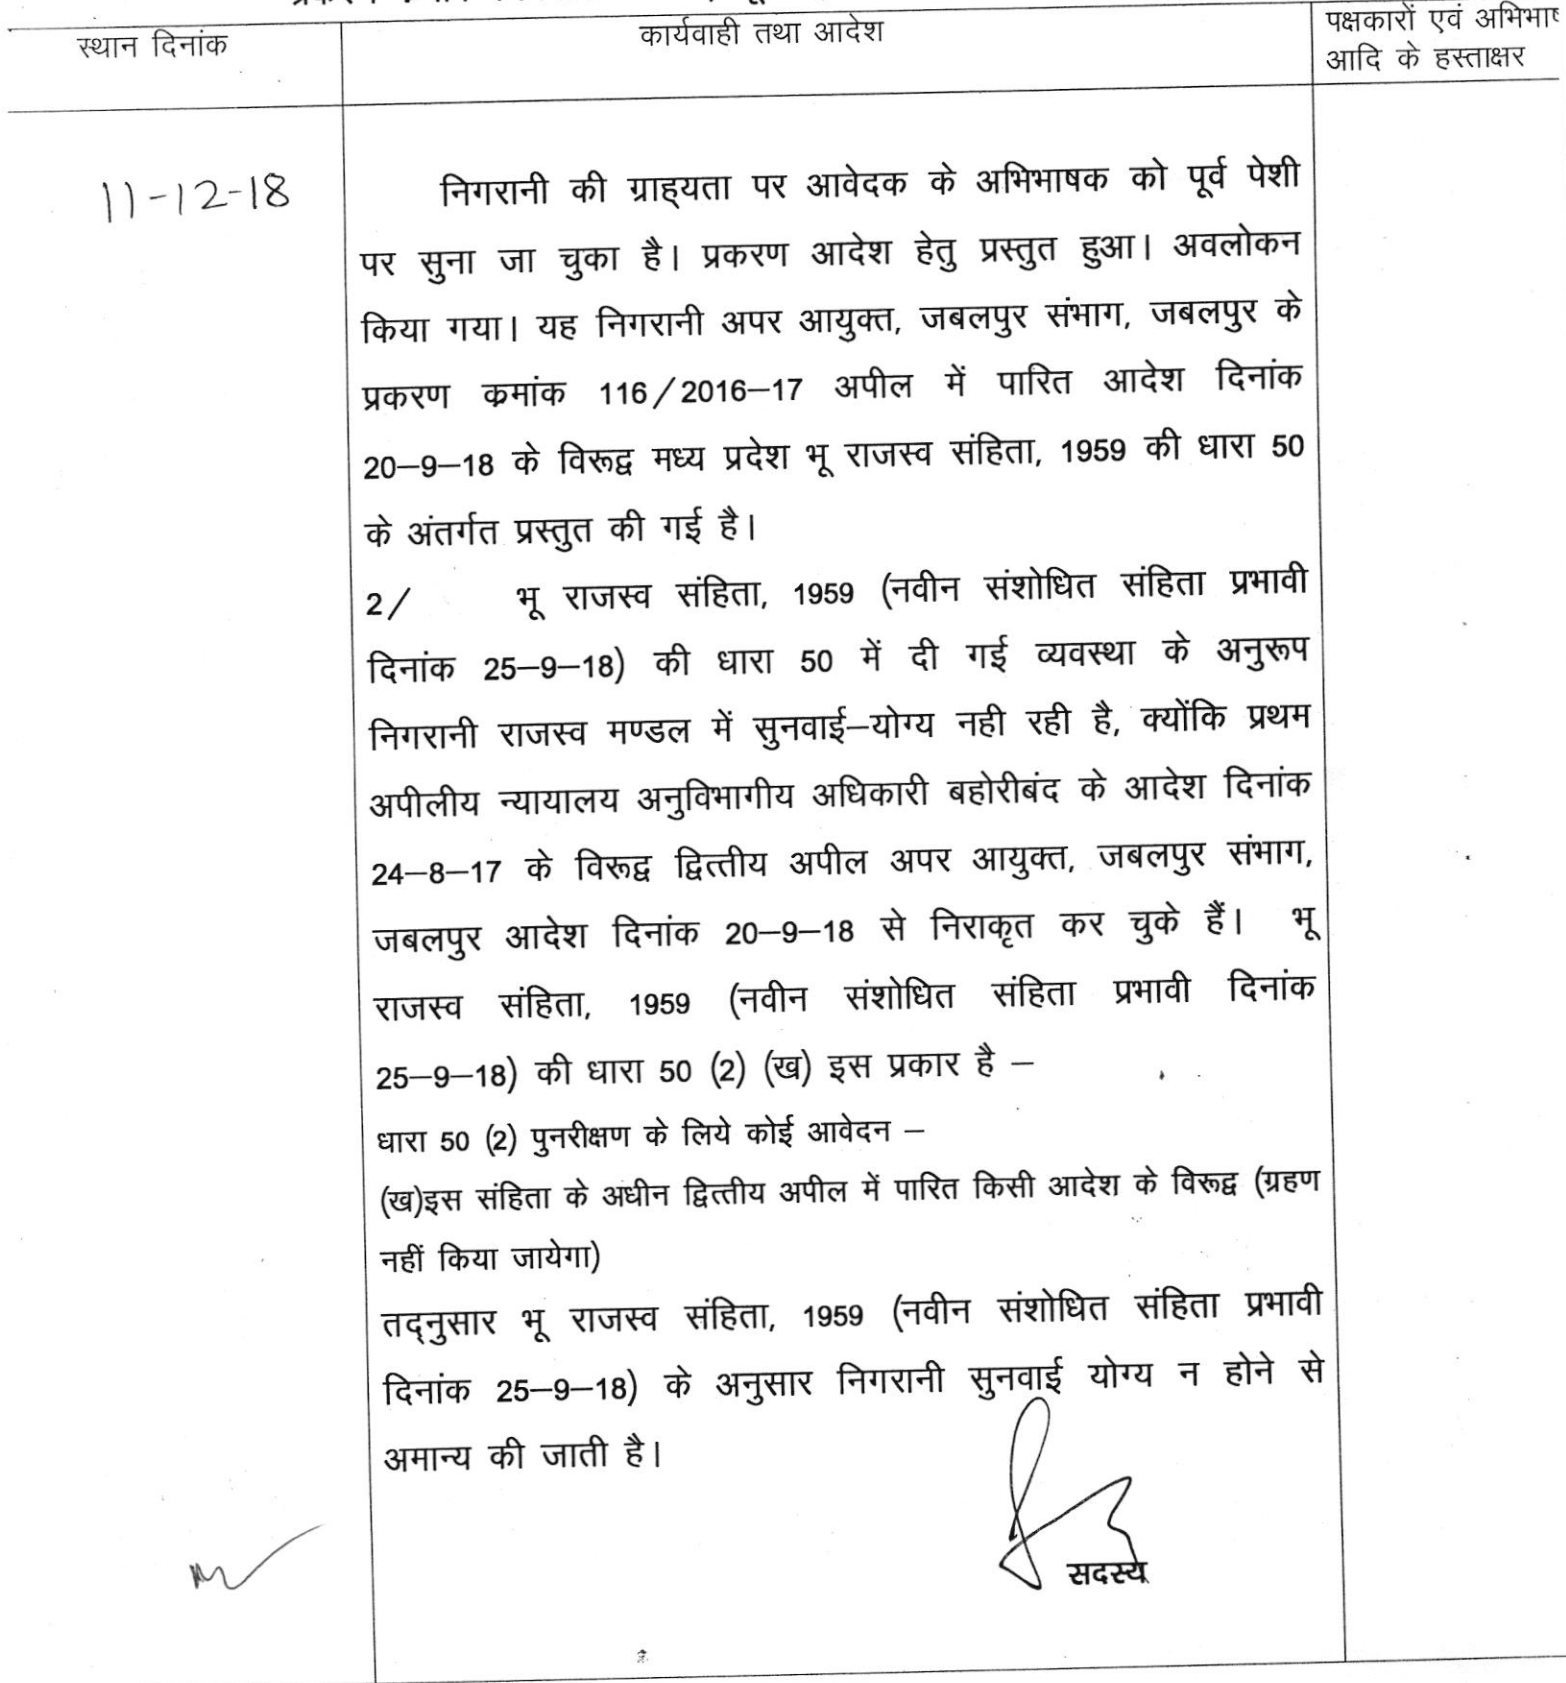 स्थान दिनांक
कार्यवाही तथा आदेश
पक्षकारों एवं
आदि के हस्ताक्षर
11-12-18
निगरानी की ग्राह्यता पर आवेदक के अभिभाषक को पूर्व पेशी
पर सुना जा चुका है। प्रकरण आदेश हेतु प्रस्तुत हुआ। अवलोकन
किया गया। यह निगरानी अपर आयुक्त, जबलपुर संभाग, जबलपुर के
प्रकरण क्रमांक 116/2016–17 अपील में पारित आदेश दिनांक
20–9–18 के विरूद्व मध्य प्रदेश भू राजस्व संहिता, 1959 की धारा 50
के अंतर्गत प्रस्तुत की गई है।
2/ भू राजस्व संहिता, 1959 (नवीन संशोधित संहिता प्रभावी
दिनांक 25–9–18) की धारा 50 में दी गई व्यवस्था के अनुरूप
निगरानी राजस्व मण्डल में सुनवाई–योग्य नही रही है, क्योंकि प्रथम
अपीलीय न्यायालय अनुविभागीय अधिकारी बहोरीबंद के आदेश दिनांक
24–8–17 के विरूद्व द्वित्तीय अपील अपर आयुक्त, जबलपुर संभाग,
जबलपुर आदेश दिनांक 20–9–18 से निराकृत कर चुके हैं। भू
राजस्व संहिता, 1959 (नवीन संशोधित संहिता प्रभावी दिनांक
25–9–18) की धारा 50 (2) (ख) इस प्रकार है –
धारा 50 (2) पुनरीक्षण के लिये कोई आवेदन –
(ख)इस संहिता के अधीन द्वित्तीय अपील में पारित किसी आदेश के विरूद्व (ग्रहण
नहीं किया जायेगा)
तद्नुसार भू राजस्व संहिता, 1959 (नवीन संशोधित संहिता प्रभावी
दिनांक 25–9–18) के अनुसार निगरानी सुनवाई योग्य न होने से
अमान्य की जाती है।
सदस्य